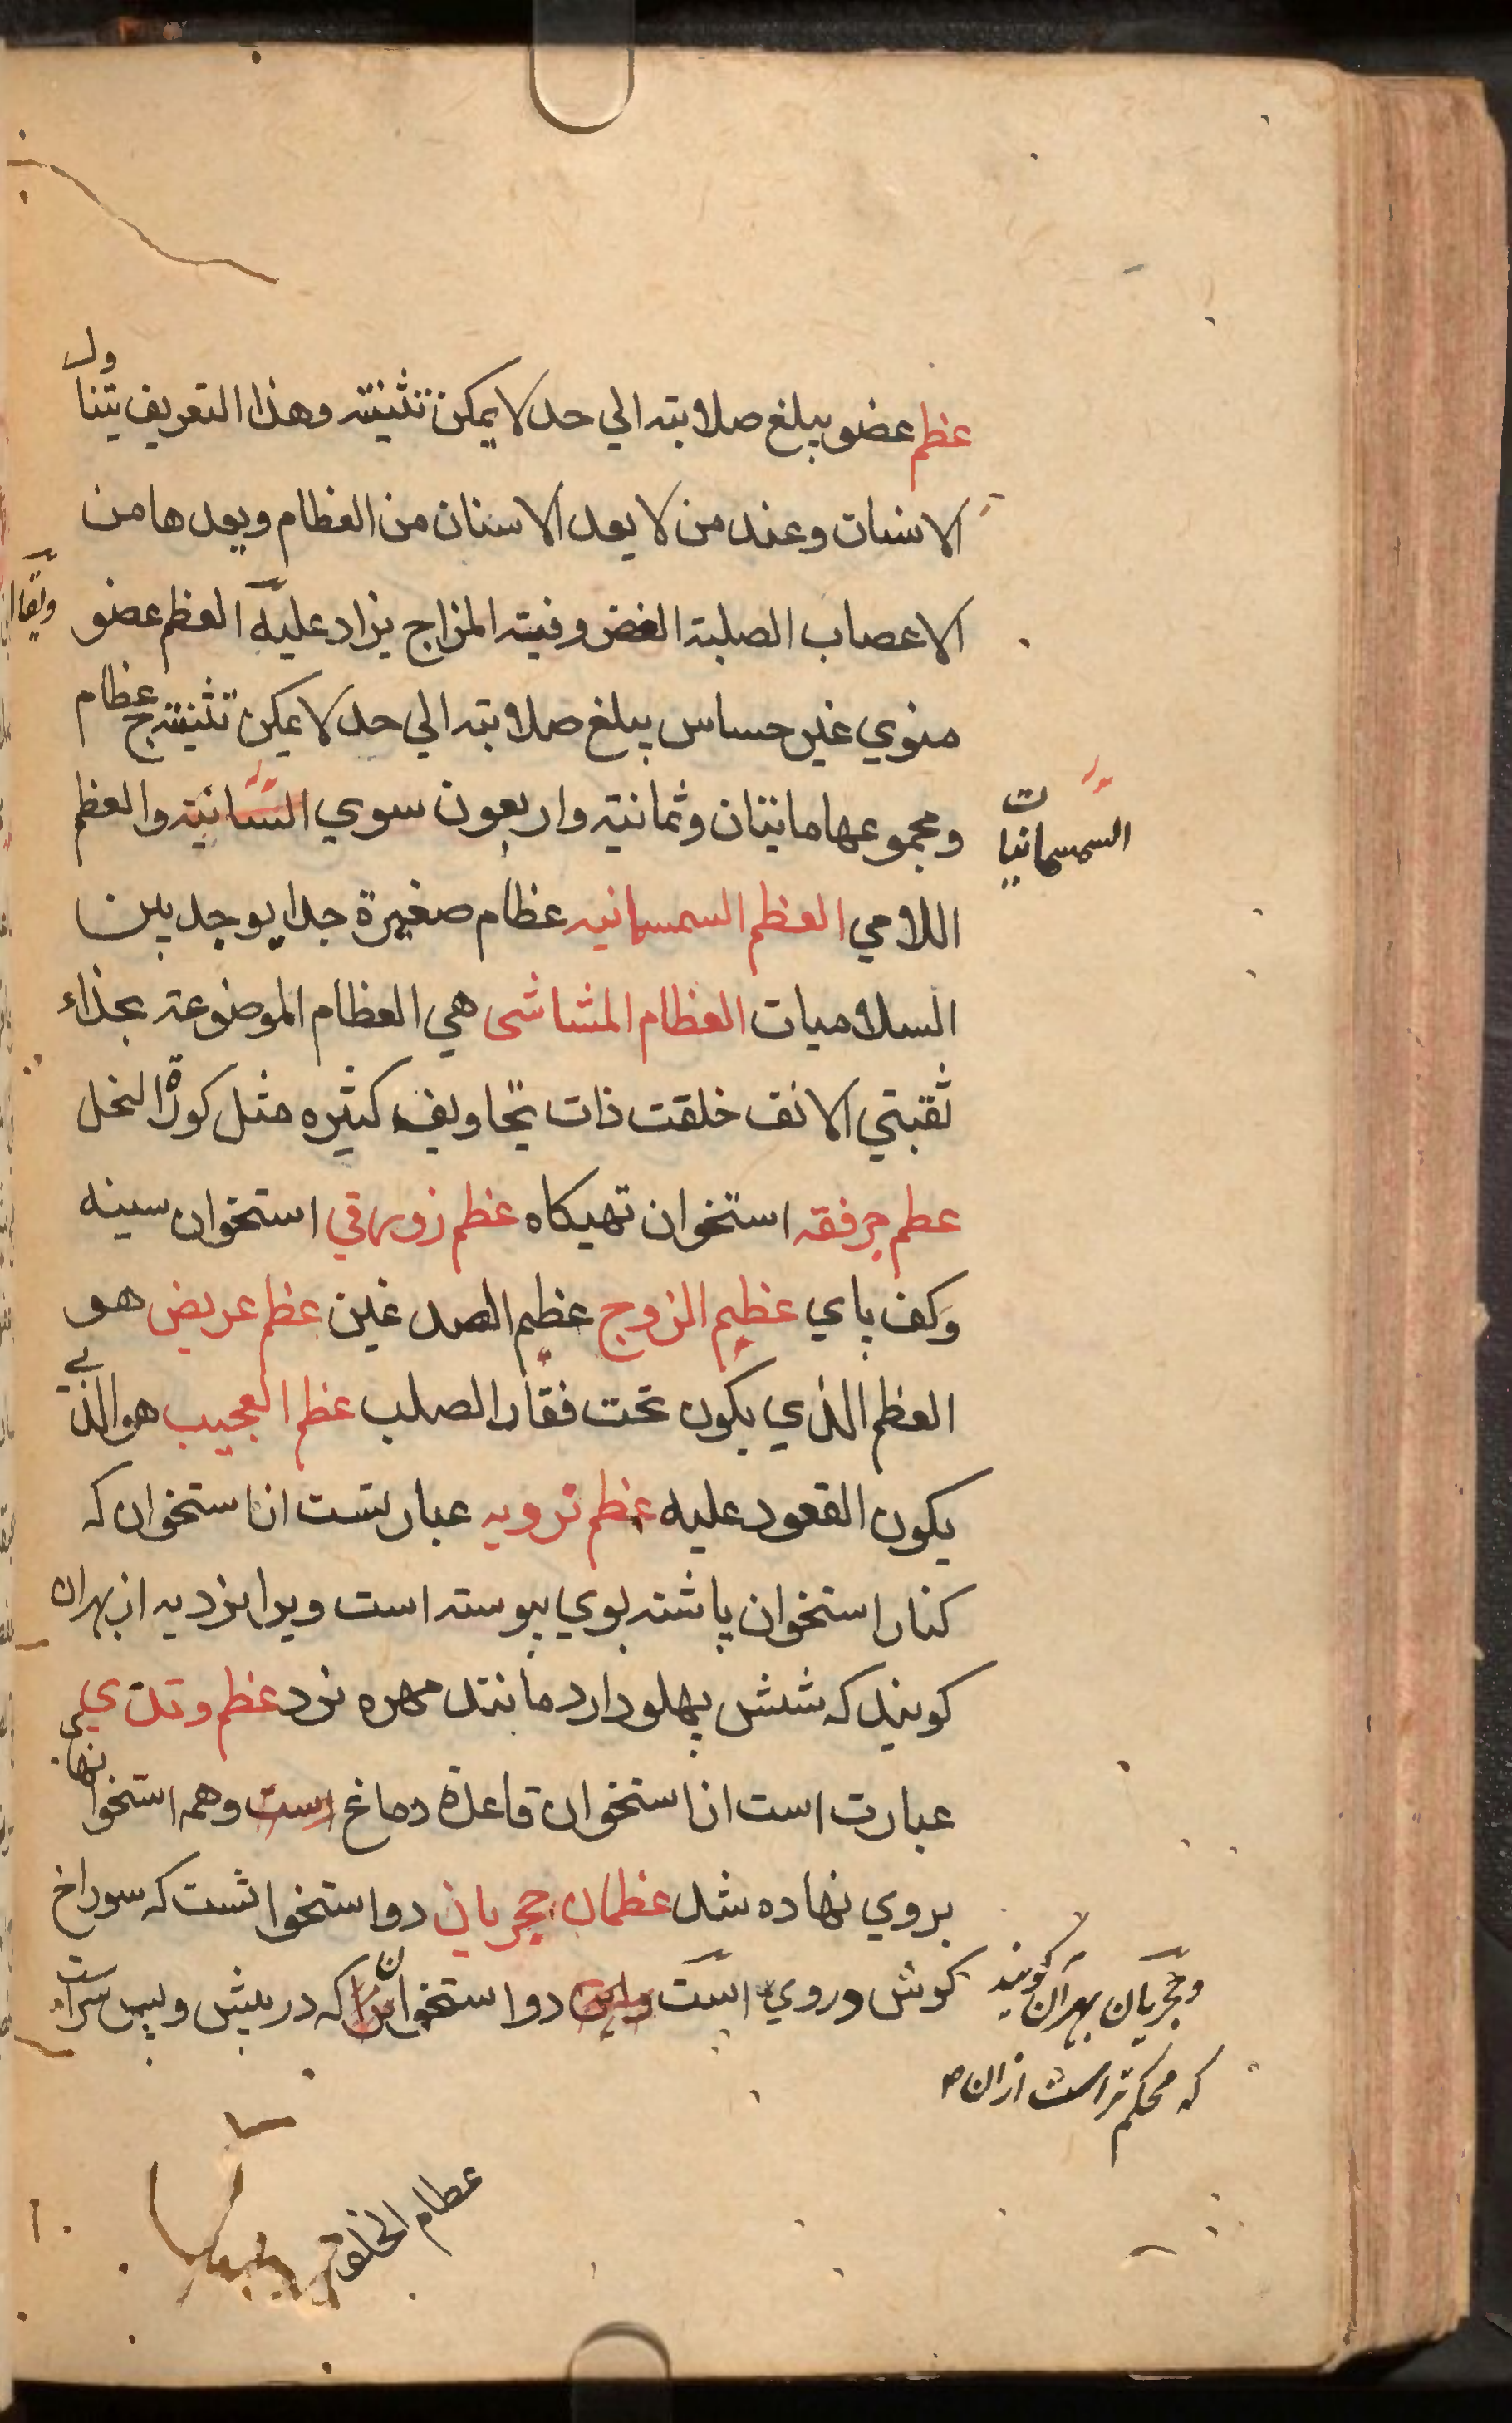 عظم عضو يبلغ صلابته الي حد لا يمكن تثنيته وهذا التعريف يتناول
الاسنان وعند من لا يعد الاسنان من العظام ويعدها من
الاعصاب الصلبة الغضروفية المزاج يزاد عليه العظم عضو
منوي غير حساس يبلغ صلابته الي حد لا يمكن تثنيته ج عظام
ومجموعها مايتان وثمانية واربعون سوي السسانية والعظم
السمسمانيات
اللامي العظم السمسمانيه عظام صغيرة جدا يوجد بين
السلاميات العظام المشاشى هي العظام الموضوعة بحذاء
ثقبتي الانف خلقت ذات تجاويف كثيره مثل كورة النحل
عطم حرفقه استخوان تهيكاه عظم زورقي استخوان سينه
وكف پاي عظيم الزوج عظيم الصدغين عظم عريض هو
العظم الذي يكون تحت فقار الصلب عظم العجيب هو الذي
يكون القعود عليه عظم نرويه عبارتست از استخوان كه
كنار استخوان پاشنه بوي پيوسته است ويرا نرديه از بهر ان
كويند كه شش پهلو دارد مانند مهره نرد عظم وتدي
عبارت است از استخوان قاعدة دماغ است وهمه استخوانهاي
بروي نهاده شد عظمان حجريان دو استخوانست كه سوراخ
كوش دروي است دو استخوان را كه در پيش وپس سراست
وحجريان بهر آن كويند
كه محكم تر است از ان
عطام الخلو